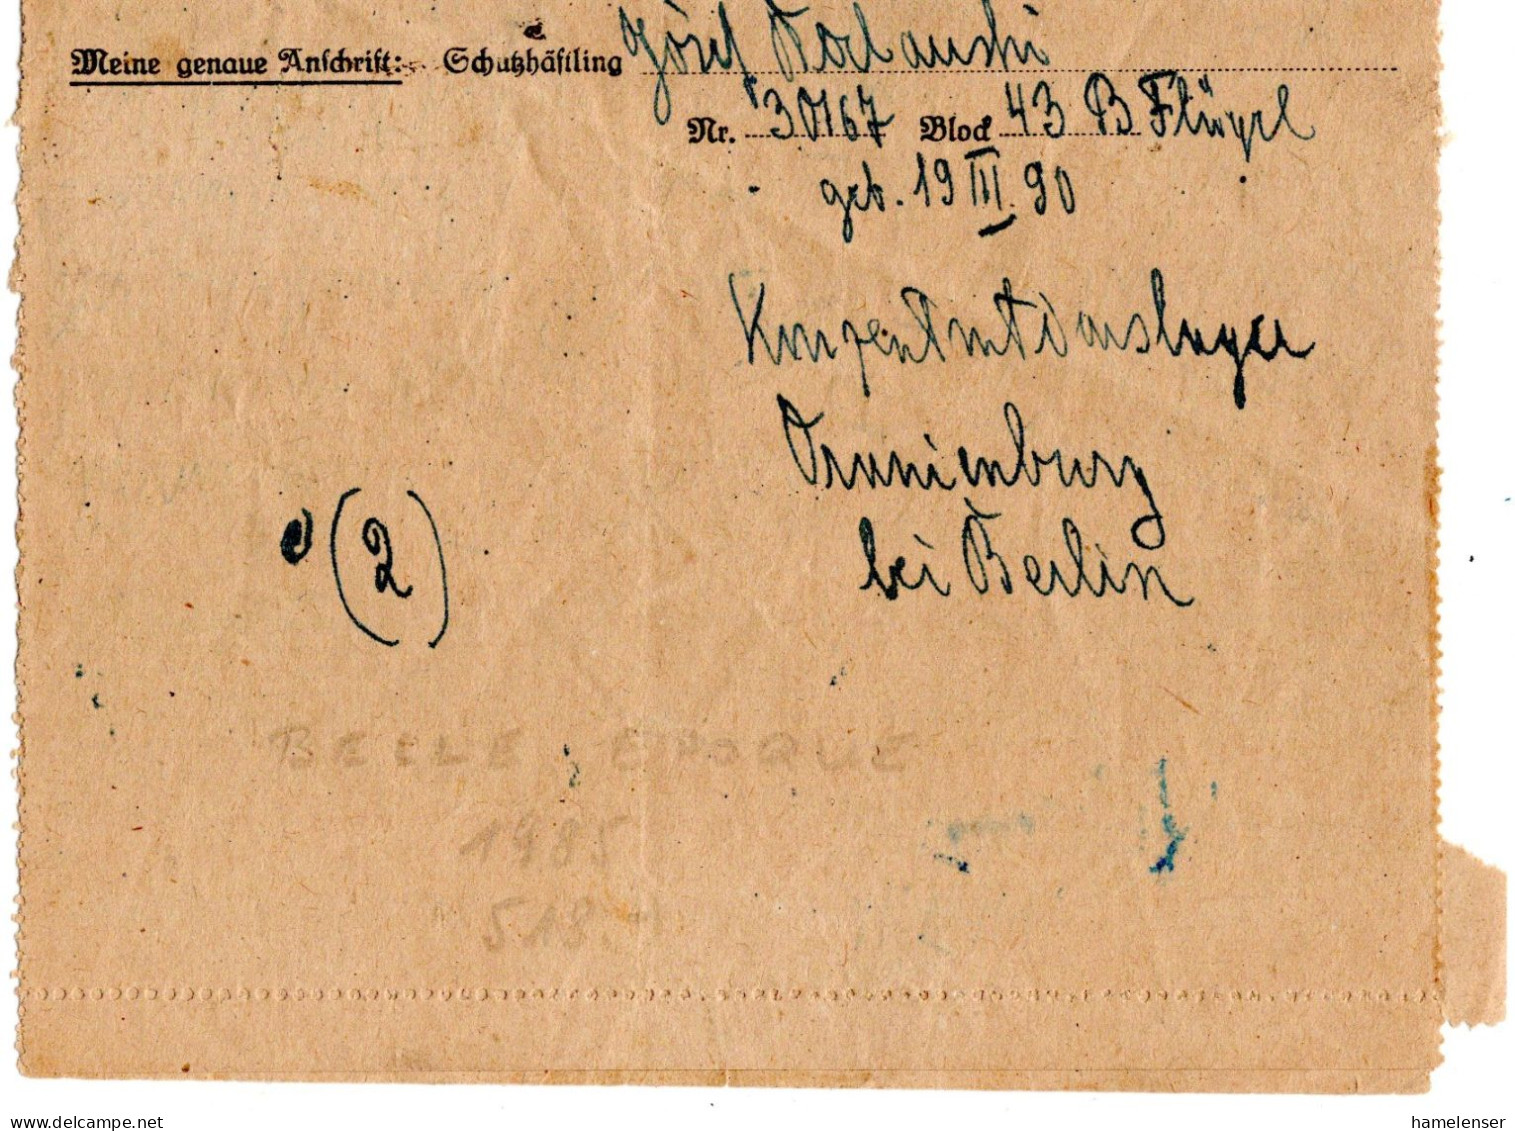 Meine genaue Anschrift: Schutzhäftling Józef
Nr. 30167 Block 43 B Flügel
geb. 19 III. 90
Konzentrationslager
Oranienburg
bei Berlin
(2)
BELLE EPOQUE
1985
518.-
www.delcampe.net
hamelenser